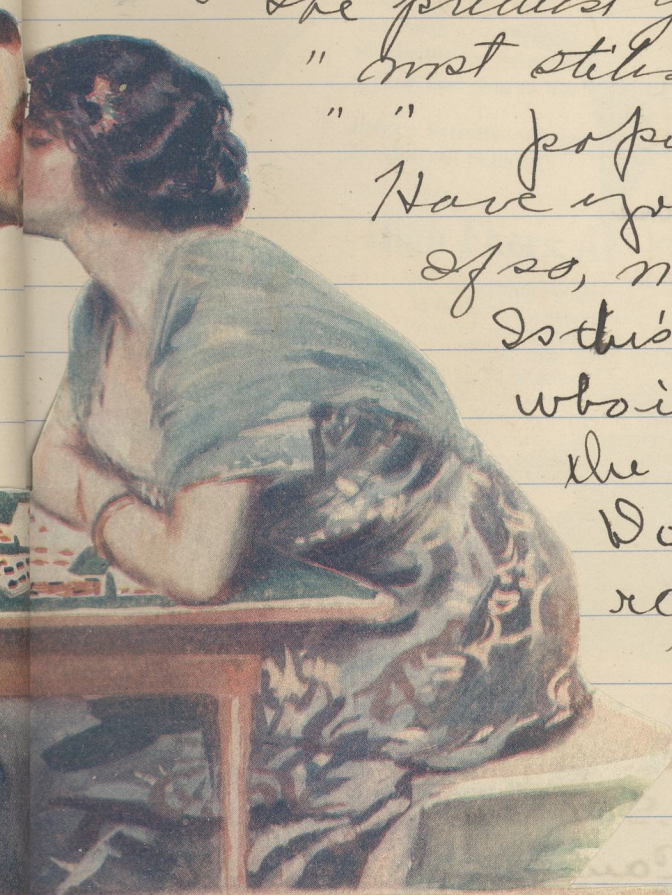 the prettiest
" most
" " pop
Have yo
If so, n
Is this
who i
the
Do
ro